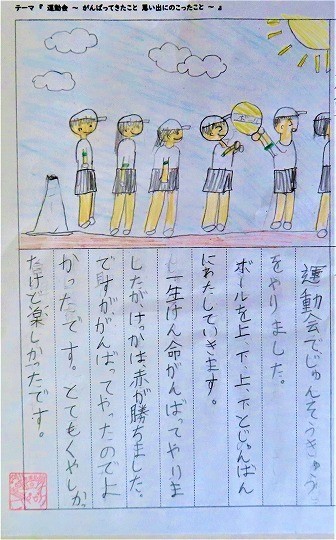 テーマ『 運動会 ～ がんばってきたこと 思い出にのこったこと ～ 』
運動会でじゅんそうきゅう
をやりました。
ボールを上、下、上、下とじゅんばん
にわたしていきます。
一生けん命がんばってやりま
したがけっかは赤が勝ちました。
ですががんばってやったのでよ
かったです。とてもくやしかっ
たけど楽しかったです。